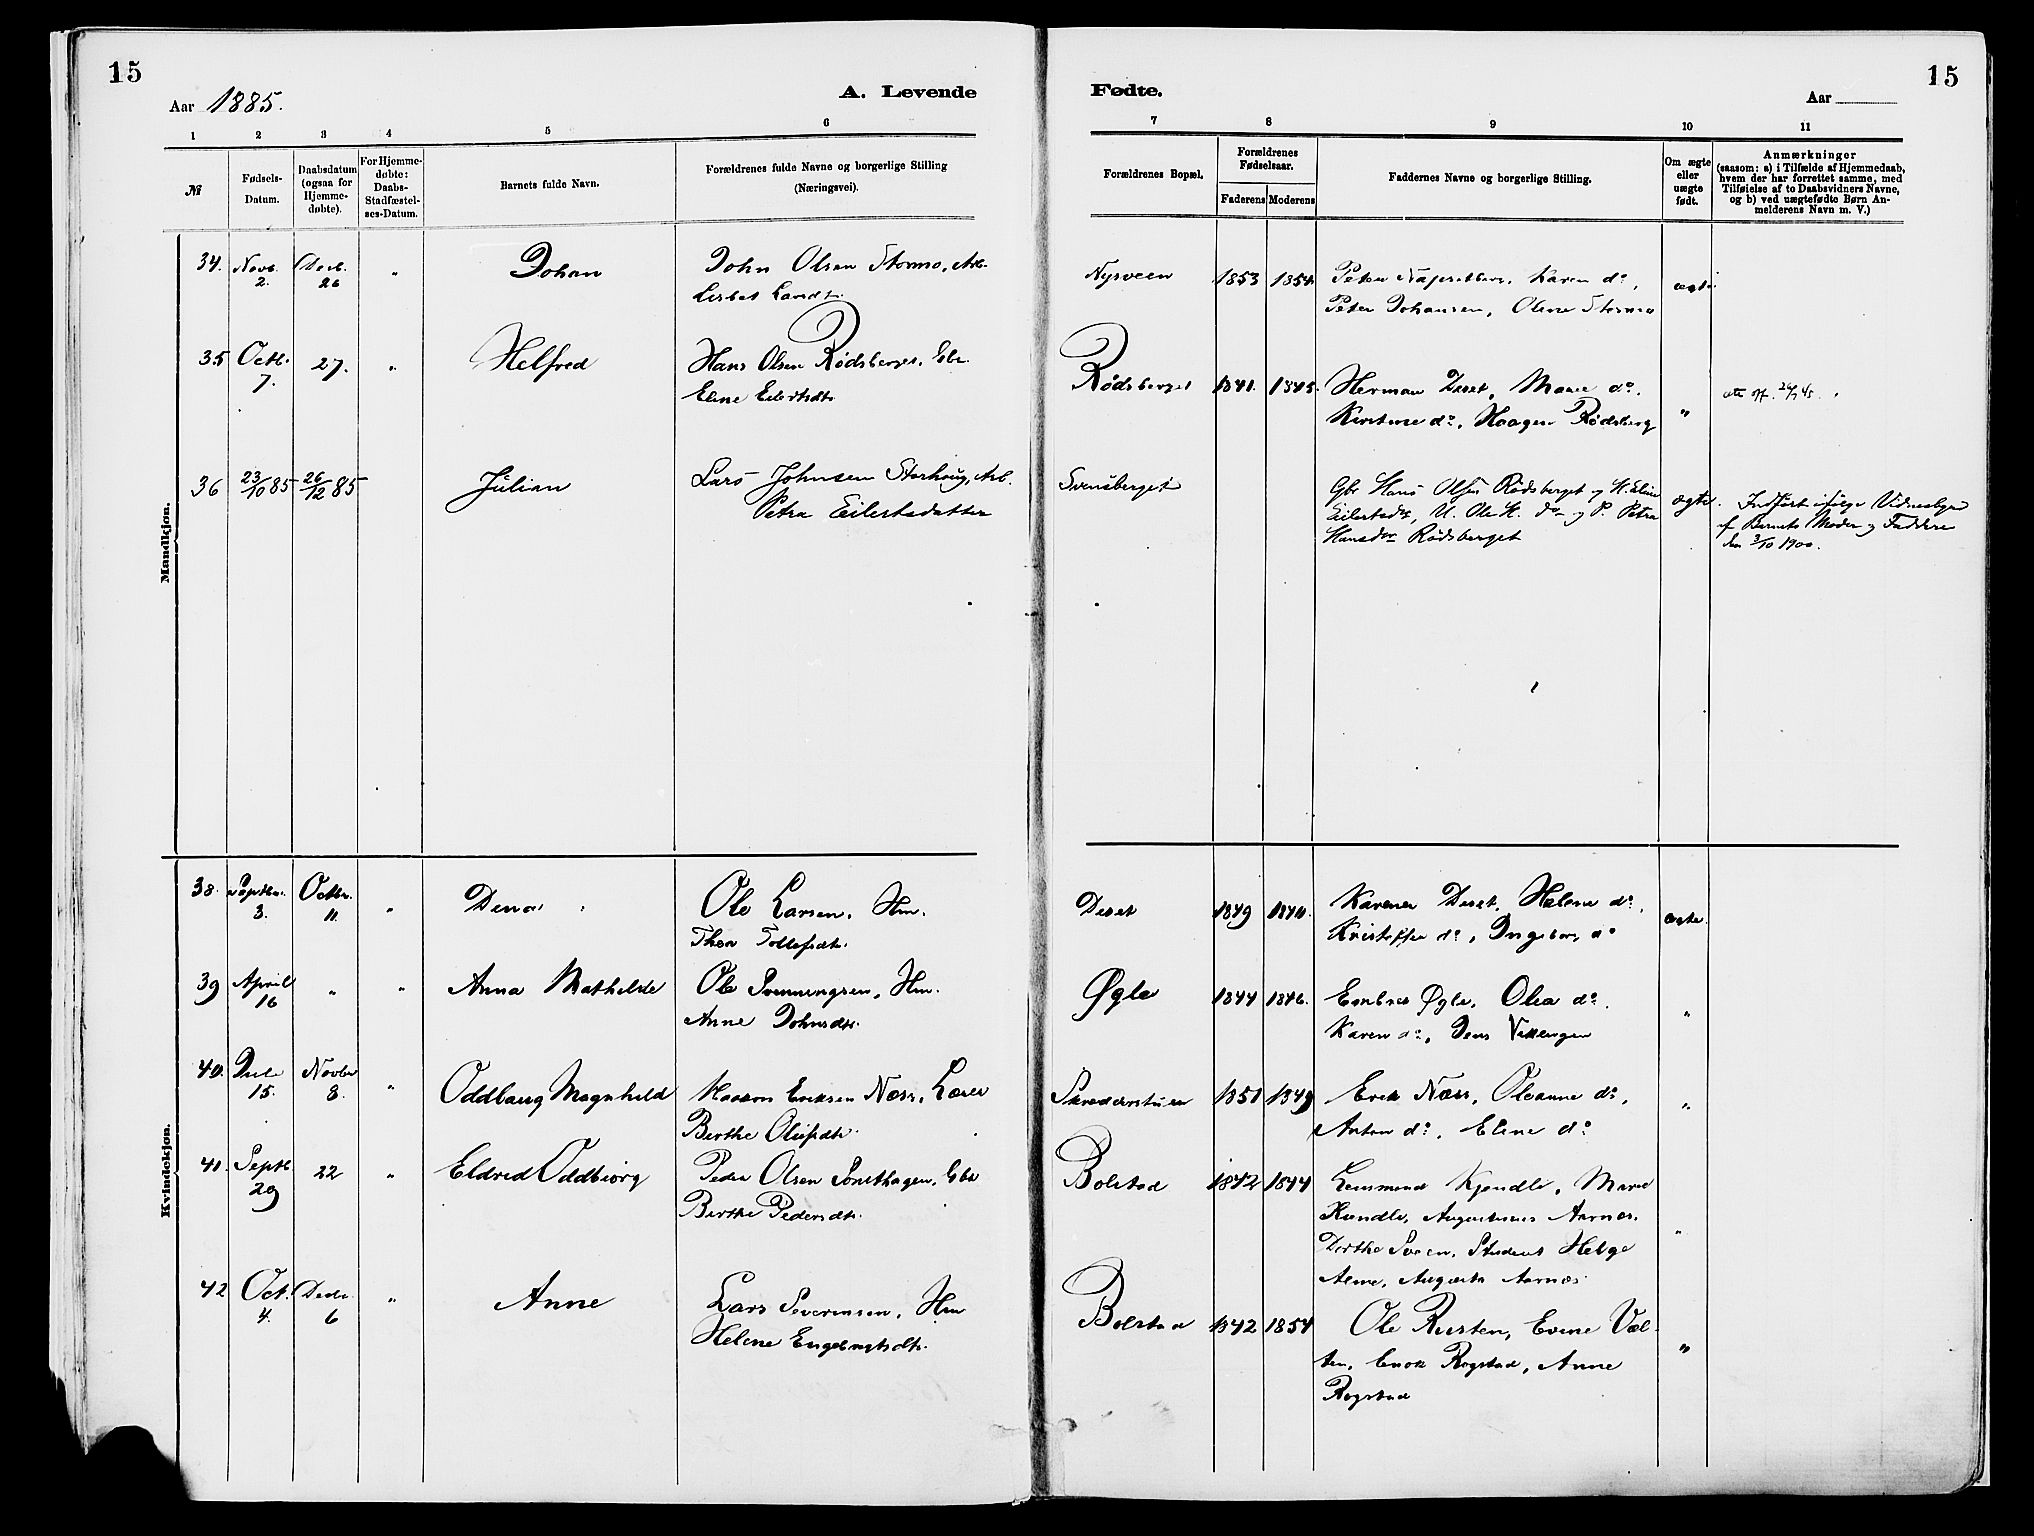 15
Aar 1885.
A. Levende
1 2 3 4 5 6
№
Fødsels-
Datum.
Daabsdatum
(ogsaa for
Hjemme-
døbte).
For Hjemme-
døbte:
Daabs-
Stadfæstel-
ses-Datum.
Barnets fulde Navn.
Forældrenes fulde Navne og borgerlige Stilling
(Næringsvei).
Mandkjøn.
34. Novb. Decb. " Johan John Olsen Stormo, Arb.
2. 26 Lisbet Larsdtr.
35 Octb. 27. " Helfred Hans Olsen Rødsberget, Gbr.
7. Eline Eilertsdtr.
36 23/10 85 26/12 85 Julian Lars Johnsen Storhaug, Arb.
Petra Eilertsdatter
Kvindekjøn.
38. Septbr. Octbr. " Dena Ole Larsen, Hm.
3. 11. Thea Tollefsdtr.
39 April " " Anna Mathilde Ole Svenningsen, Hm.
16 Anne Johnsdtr.
40. Juli Novbr " Oddbaug Magnhild Haakon Eriksen Næss, Lærer
15. 8. Berthe Olufsdtr.
41. Septb. 22 " Eldrid Oddbiørg Peder Olsen Sønsthagen, Gbr
29 Berthe Pedersdtr.
42 Oct. Decbr. " Anne Lars Severinsen, Hm
4. 6 Helene Engebretsdtr.
Fødte.
Aar
15
7 8 9 10 11
Forældrenes Bopæl.
Forældrenes
Fødselsaar.
Faderens Moderens
Faddernes Navne og borgerlige Stilling.
Om ægte
eller
uægte
født.
Anmærkninger
(saasom: a) i Tilfælde af Hjemmedaab,
hvem der har forrettet samme, med
Tilføielse af to Daabsvidners Navne,
og b) ved uægtefødte Børn An-
melderens Navn m. V.)
Nysveen 1853 1854 Peter Karen do, ægte
Peter Johansen, Oline Stormo
Rødsberget 1841. 1845. Herman Deset, Marie do.
Kirstine do, Haagen Rødsberg "
Svensberget Gbr Hans Olsen Rødsberget og H. Eline ægte. Indført ifølge Vidnesbyrd
Eilertsdtr, U. Ole H. do og P. Petra af Barnets Moder og Faddere
Hansdtr Rødsberget den 3/10 1900.
Deset 1849 1840. Karener Deset, Helene do, ægte.
Kristoffer do, Ingeborg do
Øgle 1844 1846. Embret Øgle, Olea do. "
Karen do, Jens
Skrædderstuen 1851 1849 Erik Næss, Oleanne do, "
Anton do, Eline do
Bolstad 1842 1844 Lensmand Kjendli, Marie
Kiendli, Augustinus Aarnæs,
Dorthe Sveen, Student Helge "
Aarnæs, Augusta Aarnæs.
Bolstad 1842 1854 Ole Rusten, Evine
Enok Rogstad, Anne "
Rogstad